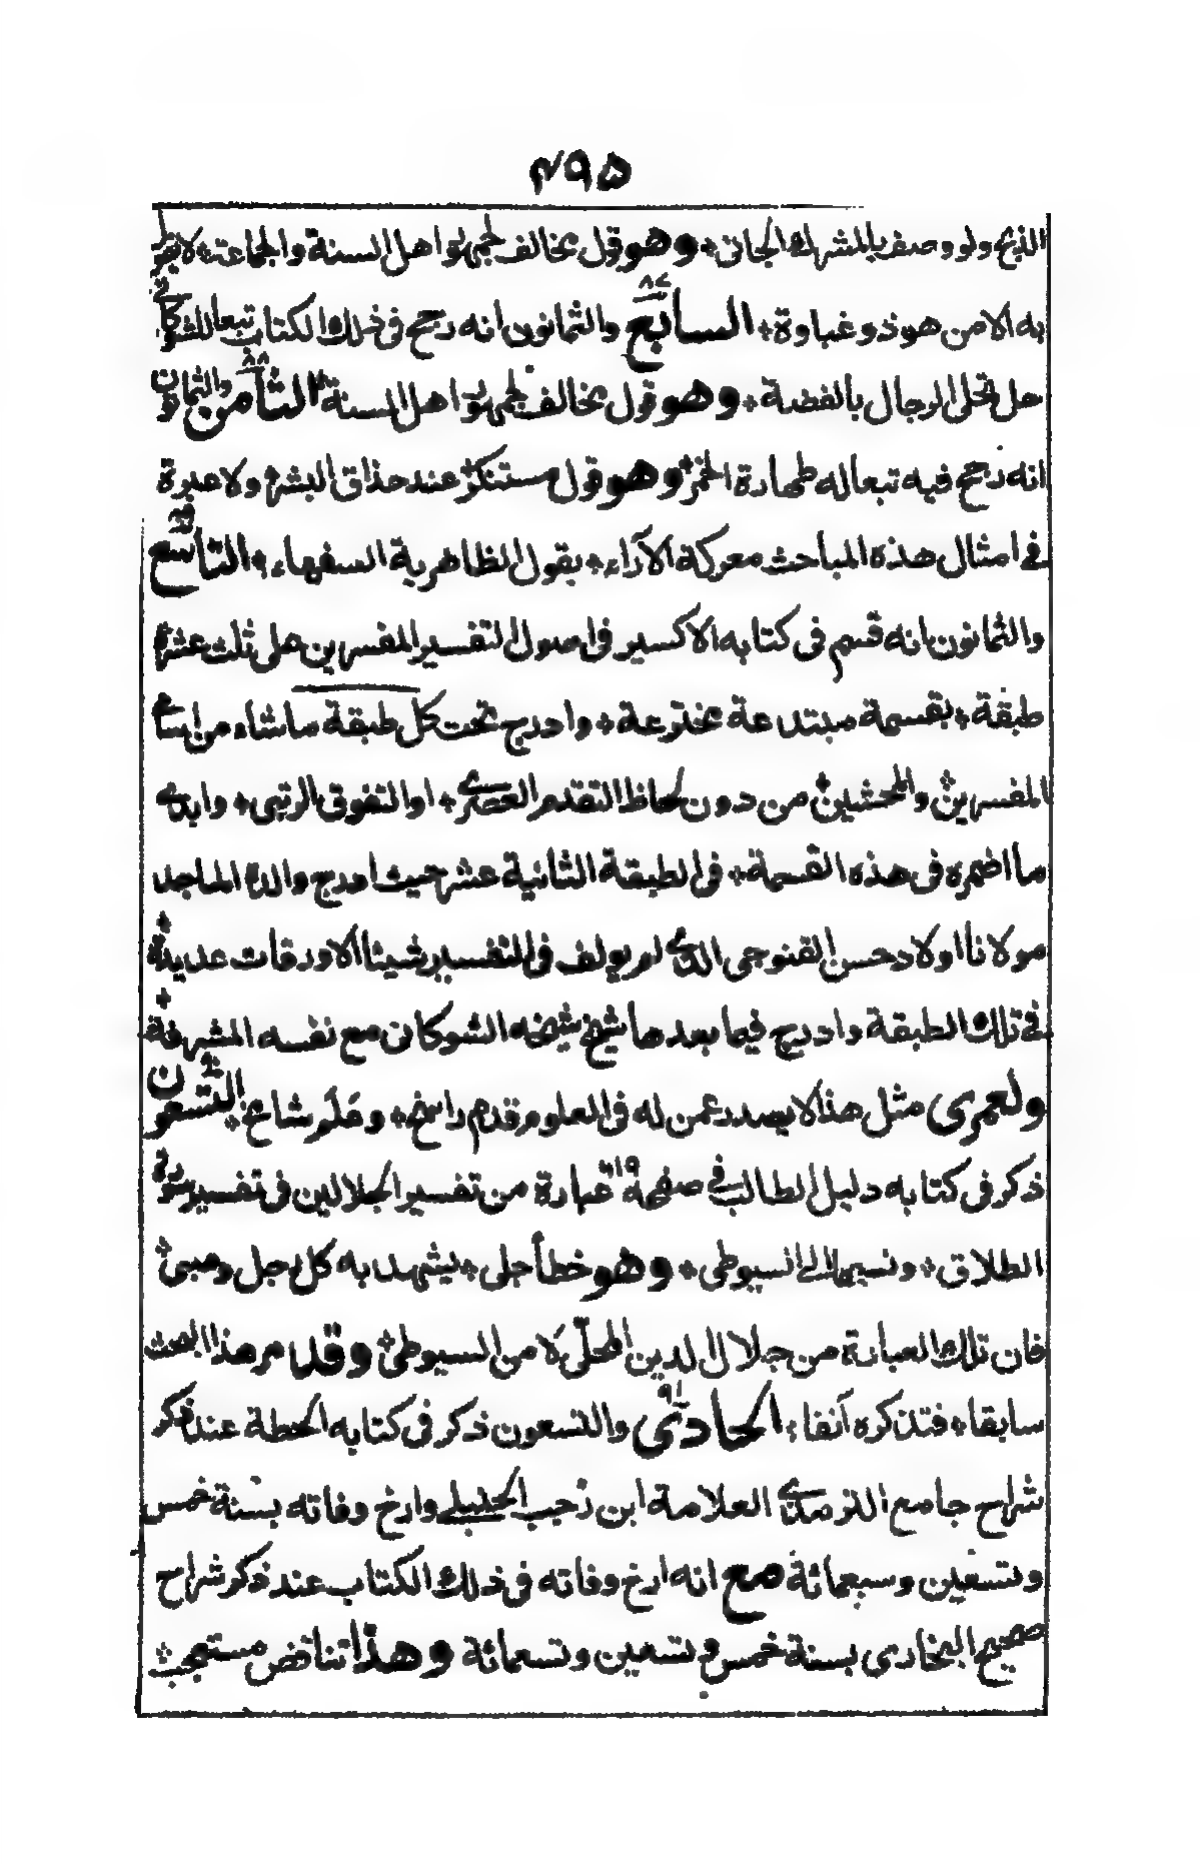 ٤٩٥
الذبح ولو وصف بالمشرك الجاني ٭ وهو قول يخالف لجمهور اهل السنة والجماعة ٭ لا يغتر
به الا من هو ذو غباوة ٭ السابع ٨٧ والثمانون انه رجح في ذلك الكتاب تبعا للشوكاني
حل تحلى الرجال بالفضة ٭ وهو قول يخالف لجمهور اهل السنة الثامن ٨٨ والثمانون
انه رجح فيه تبعا له طهارة الخمر ٭ وهو قول مستنكر عند حذاق البشر ٭ ولا عبرة
في امثال هذه المباحث معركة الآراء ٭ بقول الظاهرية السفهاء ٭ التاسع ٨٩
والثمانون انه قسم في كتابه الاكسير في اصول التفسير المفسرين على ثلث عشرة
طبقة ٭ بقسمة مبتدعة مخترعة ٭ وادرج تحت كل طبقة ما شاء من اسامي
المفسرين ٭ والمحشين ٭ من دون لحاظ التقدم العصري ٭ او التفوق الرتبي ٭ وابدى
ما اضمره في هذه القسمة ٭ في الطبقة الثانية عشر حيث ادرج والده الماجد
مولانا اولاد حسن القنوجي الذي لم يولف في التفسير شيئا الا ورقات عديدة ٭
في تلك الطبقة وادرج فيما بعدها شيخ شيخه الشوكاني مع نفسه المشرفة ٭
ولعمري مثل هذا لا يصدر عمن له في العلوم قدم راسخ ٭ وعلم شامخ ٭ التسعون ٩٠
ذكر في كتابه دليل الطالب في صفحة ٩١٠ عبارة من تفسير الجلالين في تفسير سورة
الطلاق ٭ ونسبها الى السيوطي ٭ وهو خطأ جلي ٭ يشهد به كل رجل وصبي ٭
فان تلك العبارة من جلال الدين المحلّى لا من السيوطي ٭ وقد مر هذا البحث
سابقا ٭ فتذكره آنفا ٭ الحادي ٩١ والتسعون ذكر في كتابه الحطة عند ذكر
شراح جامع الترمذي العلامة ابن رجب الحنبلي وارخ وفاته بسنة خمس
وتسعين وسبعمائة مع انه ارخ وفاته في ذلك الكتاب عند ذكر شراح
صحيح البخاري بسنة خمس وتسعين وتسعمائة وهذا تناقض مستعجب